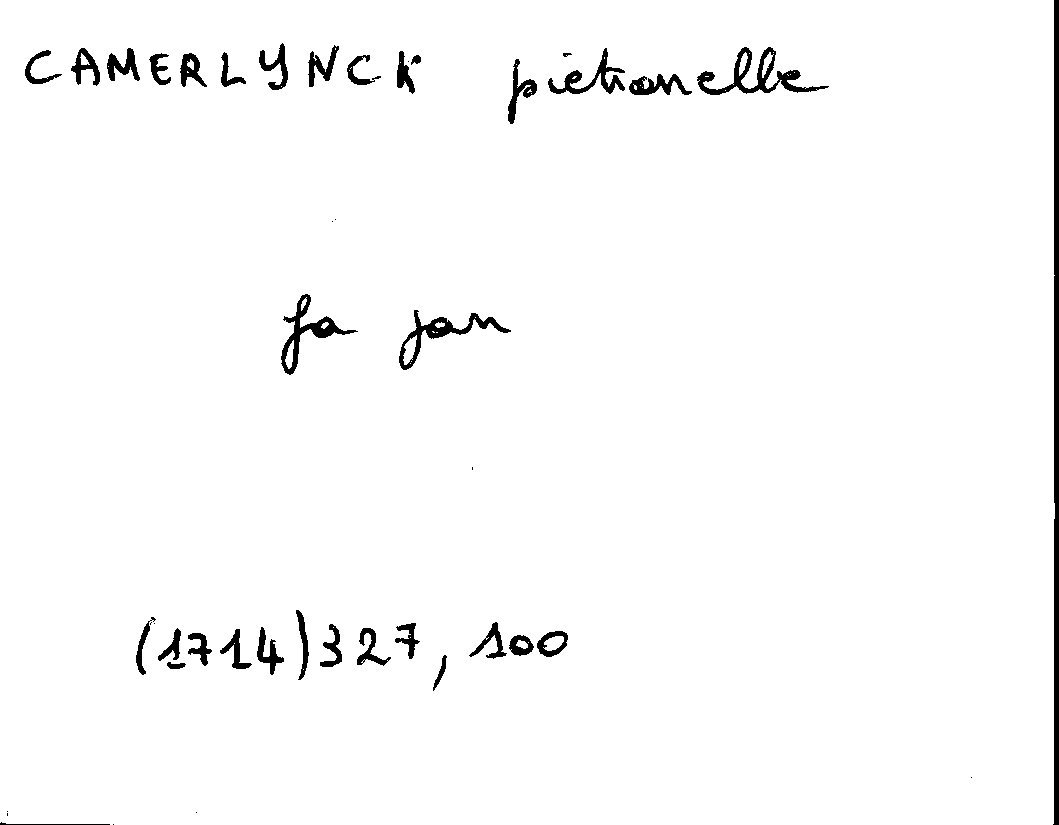 CAMERLYNCK pietronelle
fa jan
(1714)327, 100